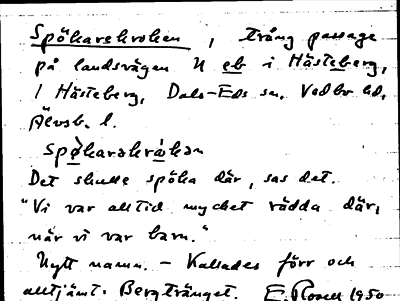 Spökarekroken, trång passage
på landsvägen N eb i Hästeberg,
1 Hästeberg, Dals-Eds sn. Vedbo hd.
Älvsb. l.
Det skulle spöka där, sas det.
"Vi var alltid mycket rädda där,
när vi var barn."
Nytt namn. – Kallades förr och
alltjämt: Bergtränget. E. Rosell 1950